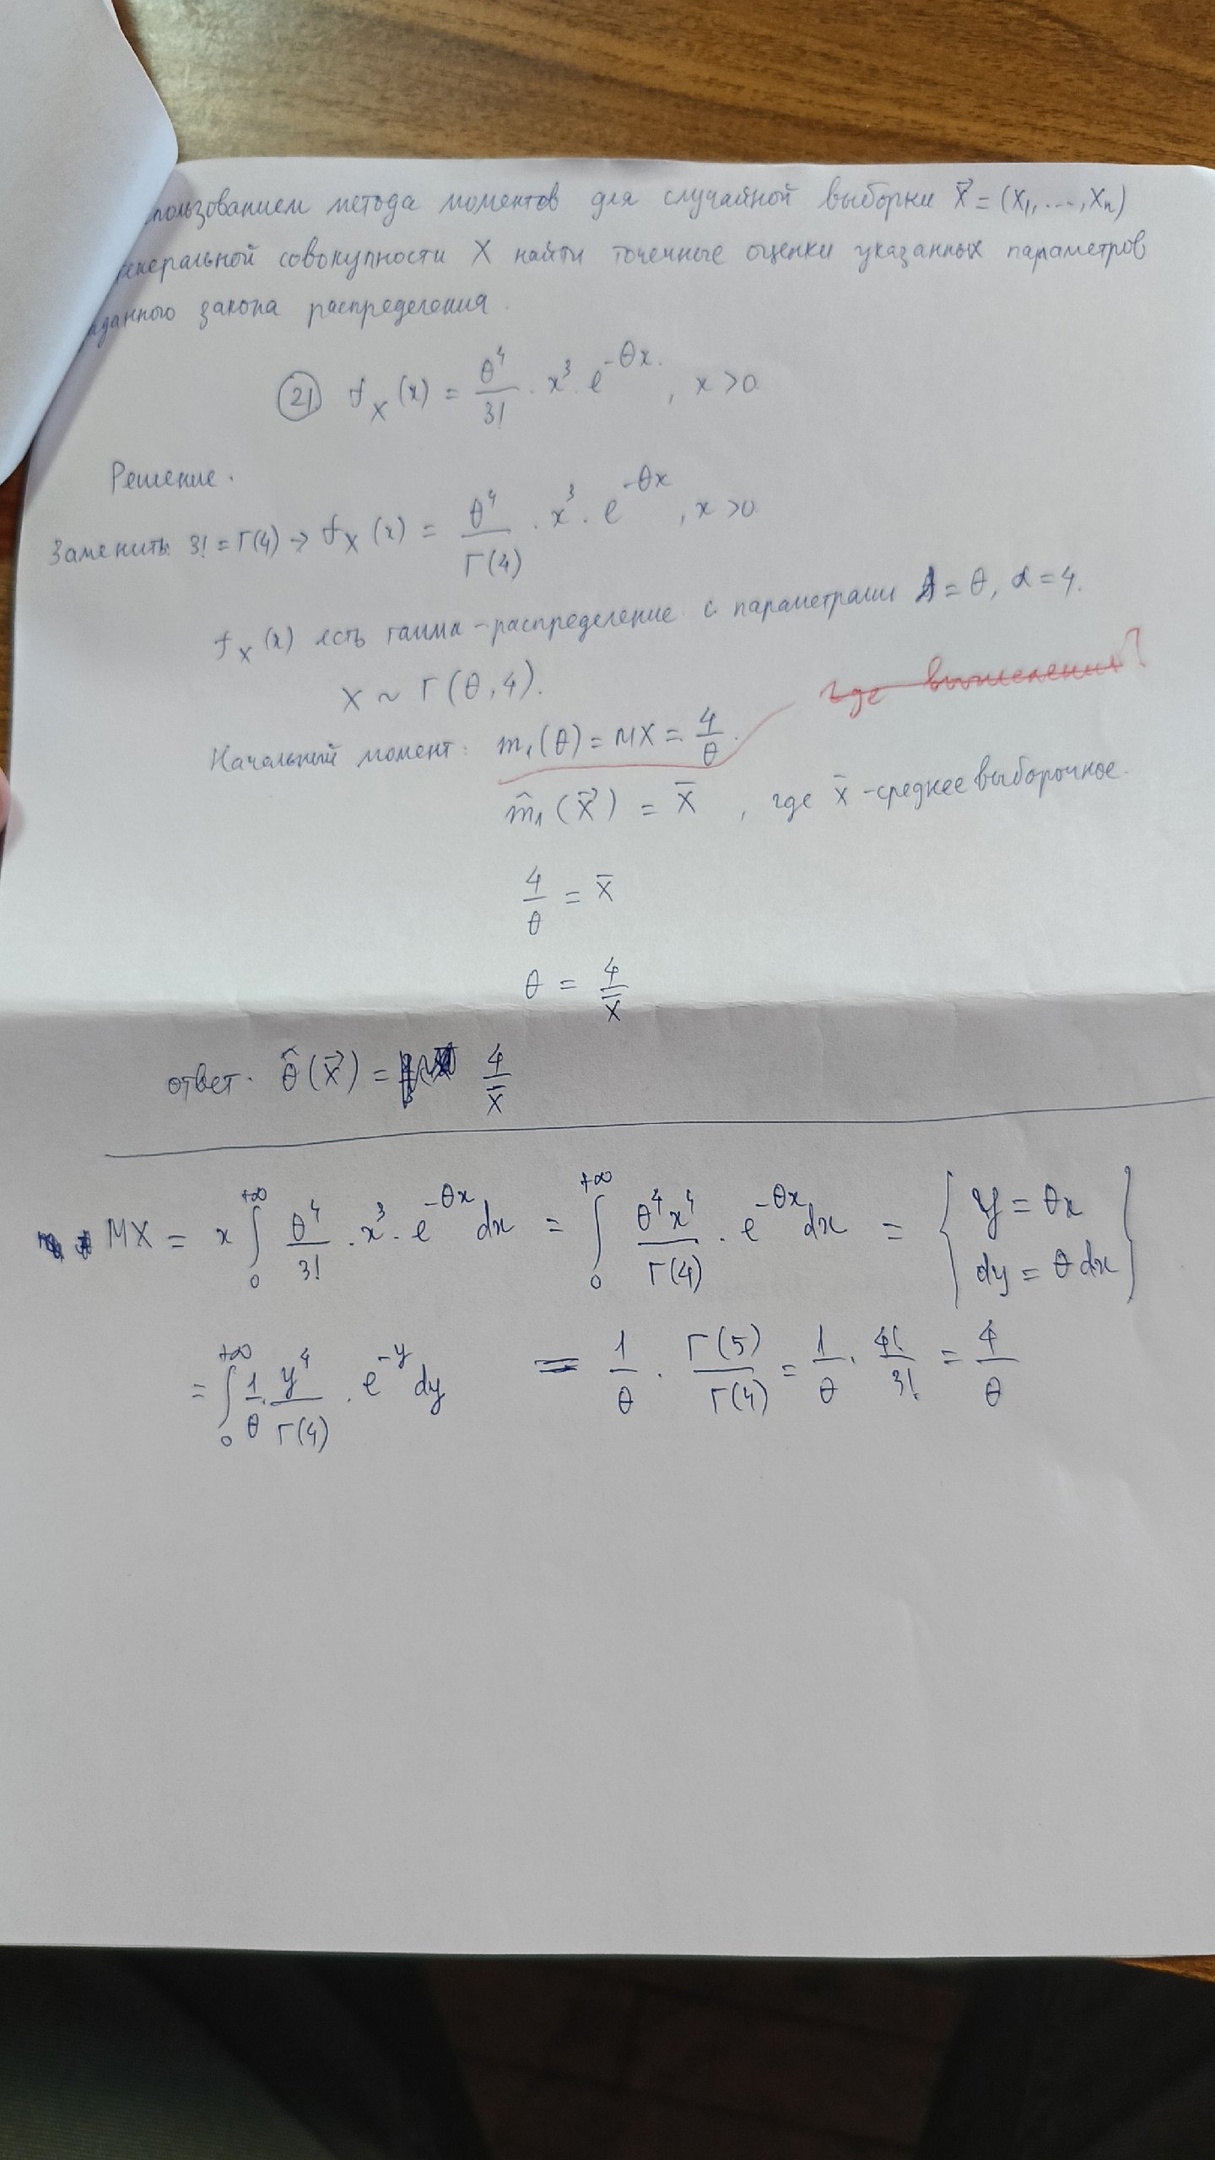 пользованием метода моментов для случайной выборки X⃗ = (X₁, ..., Xₙ)
генеральной совокупности X найти точечные оценки указанных параметров
аданного закона распределения.
(21) f_X(x) = θ⁴/3! · x³ · e^(-θx), x > 0
Решение.
Заменить 3! = Γ(4) → f_X(x) = θ⁴/Γ(4) · x³ · e^(-θx), x > 0
f_X(x) есть гамма-распределение с параметрами λ = θ, α = 4.
X ~ Γ(θ, 4).
где вычисления?
Начальный момент: m₁(θ) = MX = 4/θ.
m̂₁(X⃗) = X̄, где x̄ - среднее выборочное.
4/θ = X̄
θ = 4/X̄
ответ. θ̂(X⃗) = 4/X̄
MX = x ∫₀^(+∞) θ⁴/3! · x³ · e^(-θx) dx = ∫₀^(+∞) θ⁴x⁴/Γ(4) · e^(-θx) dx = { y = θx
dy = θdx }
= ∫₀^(+∞) 1/θ · y⁴/Γ(4) · e^(-y) dy = 1/θ · Γ(5)/Γ(4) = 1/θ · 4!/3! = 4/θ